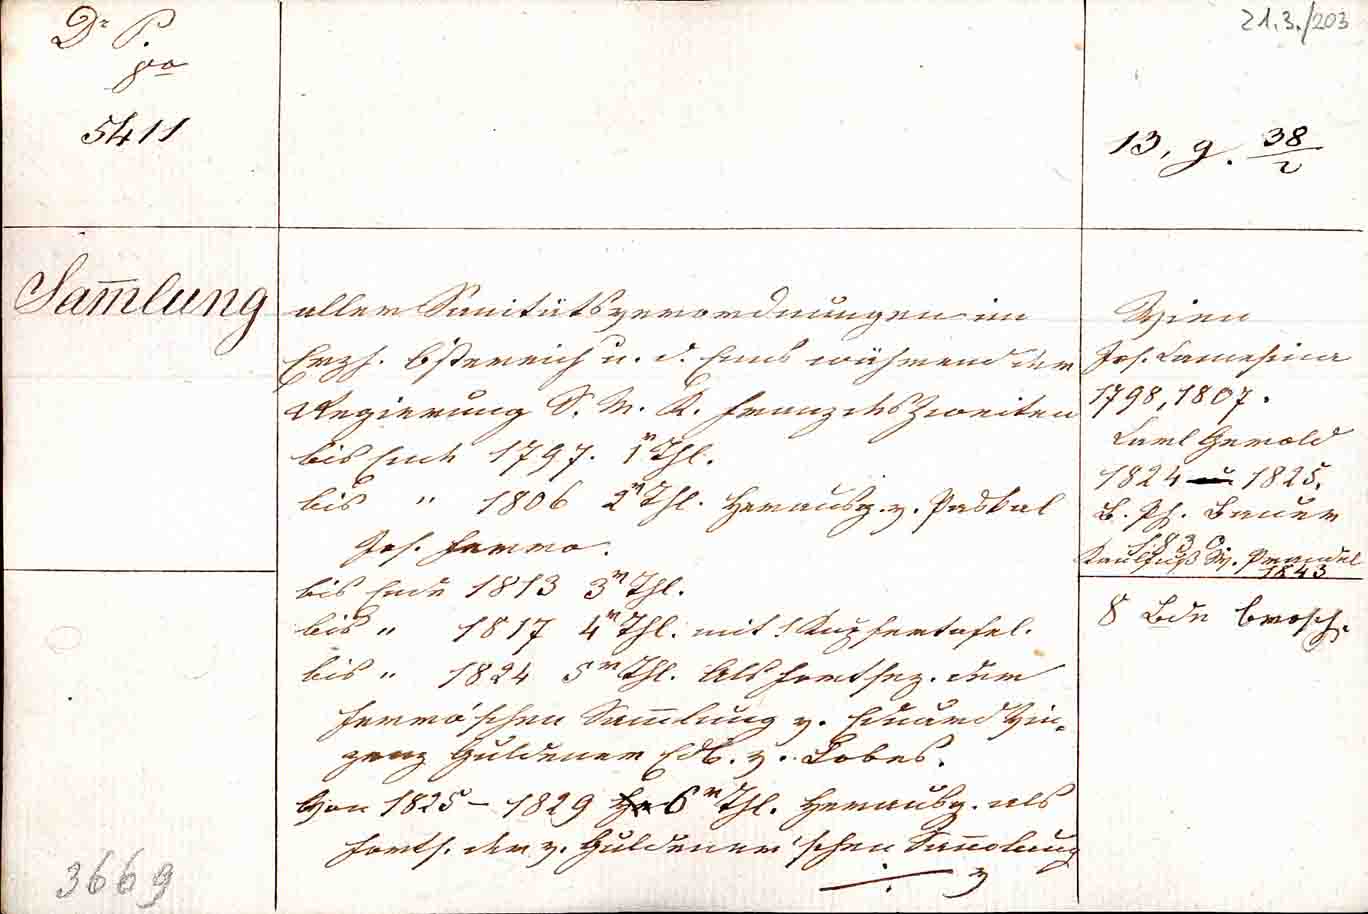 Dr P.
8vo
5411
21.3./203
13, g. 38/2
Sam̅lung
aller Sanitätsverordnungen im
Erzh. Österreich u. d. Enns während der
Regierung S. M. K. Franz des Zweiten
bis Ende 1797. 1r Thl.
bis " 1806 2r Thl. Herausg. v. Paskal
Jos. Ferro.
bis Ende 1813 3r Thl.
bis " 1817 4r Thl. mit 1 Kupfertafel.
bis " 1824 5r Thl. Als Fortsez. der
Ferro'schen Sam̅lung v. Eduard Vin-
zenz Guldener Edl. v. Lobes.
Von 1825 – 1829 6r Thl. Herausg. als
Forts. der v. Guldener'schen Sam̅lung
v
Wien
Jos. Camesina
1798, 1807.
Carl Gerold
1824 1825.
B. Ph. Bauer
1830
Kaulfuß W. Prandel
1843
8 Bde brosch.
3669